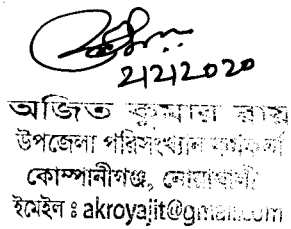 2/2/2020
অজিত কুমার রায়
উপজেলা পরিসংখ্যান কর্মকর্তা
কোম্পানীগঞ্জ, নোয়াখালী
ইমেইল ঃ akroyajit@gmail.com